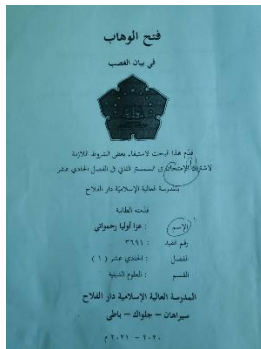 فتح الوهاب
في بيان الغصب
قدم هذا البحث لاستيفاء بعض الشروط اللازمة
لاشتراك الإمتحان في السمستر الثاني في الفصل الحادي عشر
بالمدرسة العالية الإسلامية دار الفلاح
قدمته الطالبة
الإسم : عزا أوليا رحمواتي
رقم القيد : ٣٦٩١
الفصل : الحادي عشر ( ١ )
القسم : العلوم الدينية
المدرسة العالية الإسلامية دار الفلاح
سيراهان – جلواك – باطي
٢٠٢٠ - ٢٠٢١ م